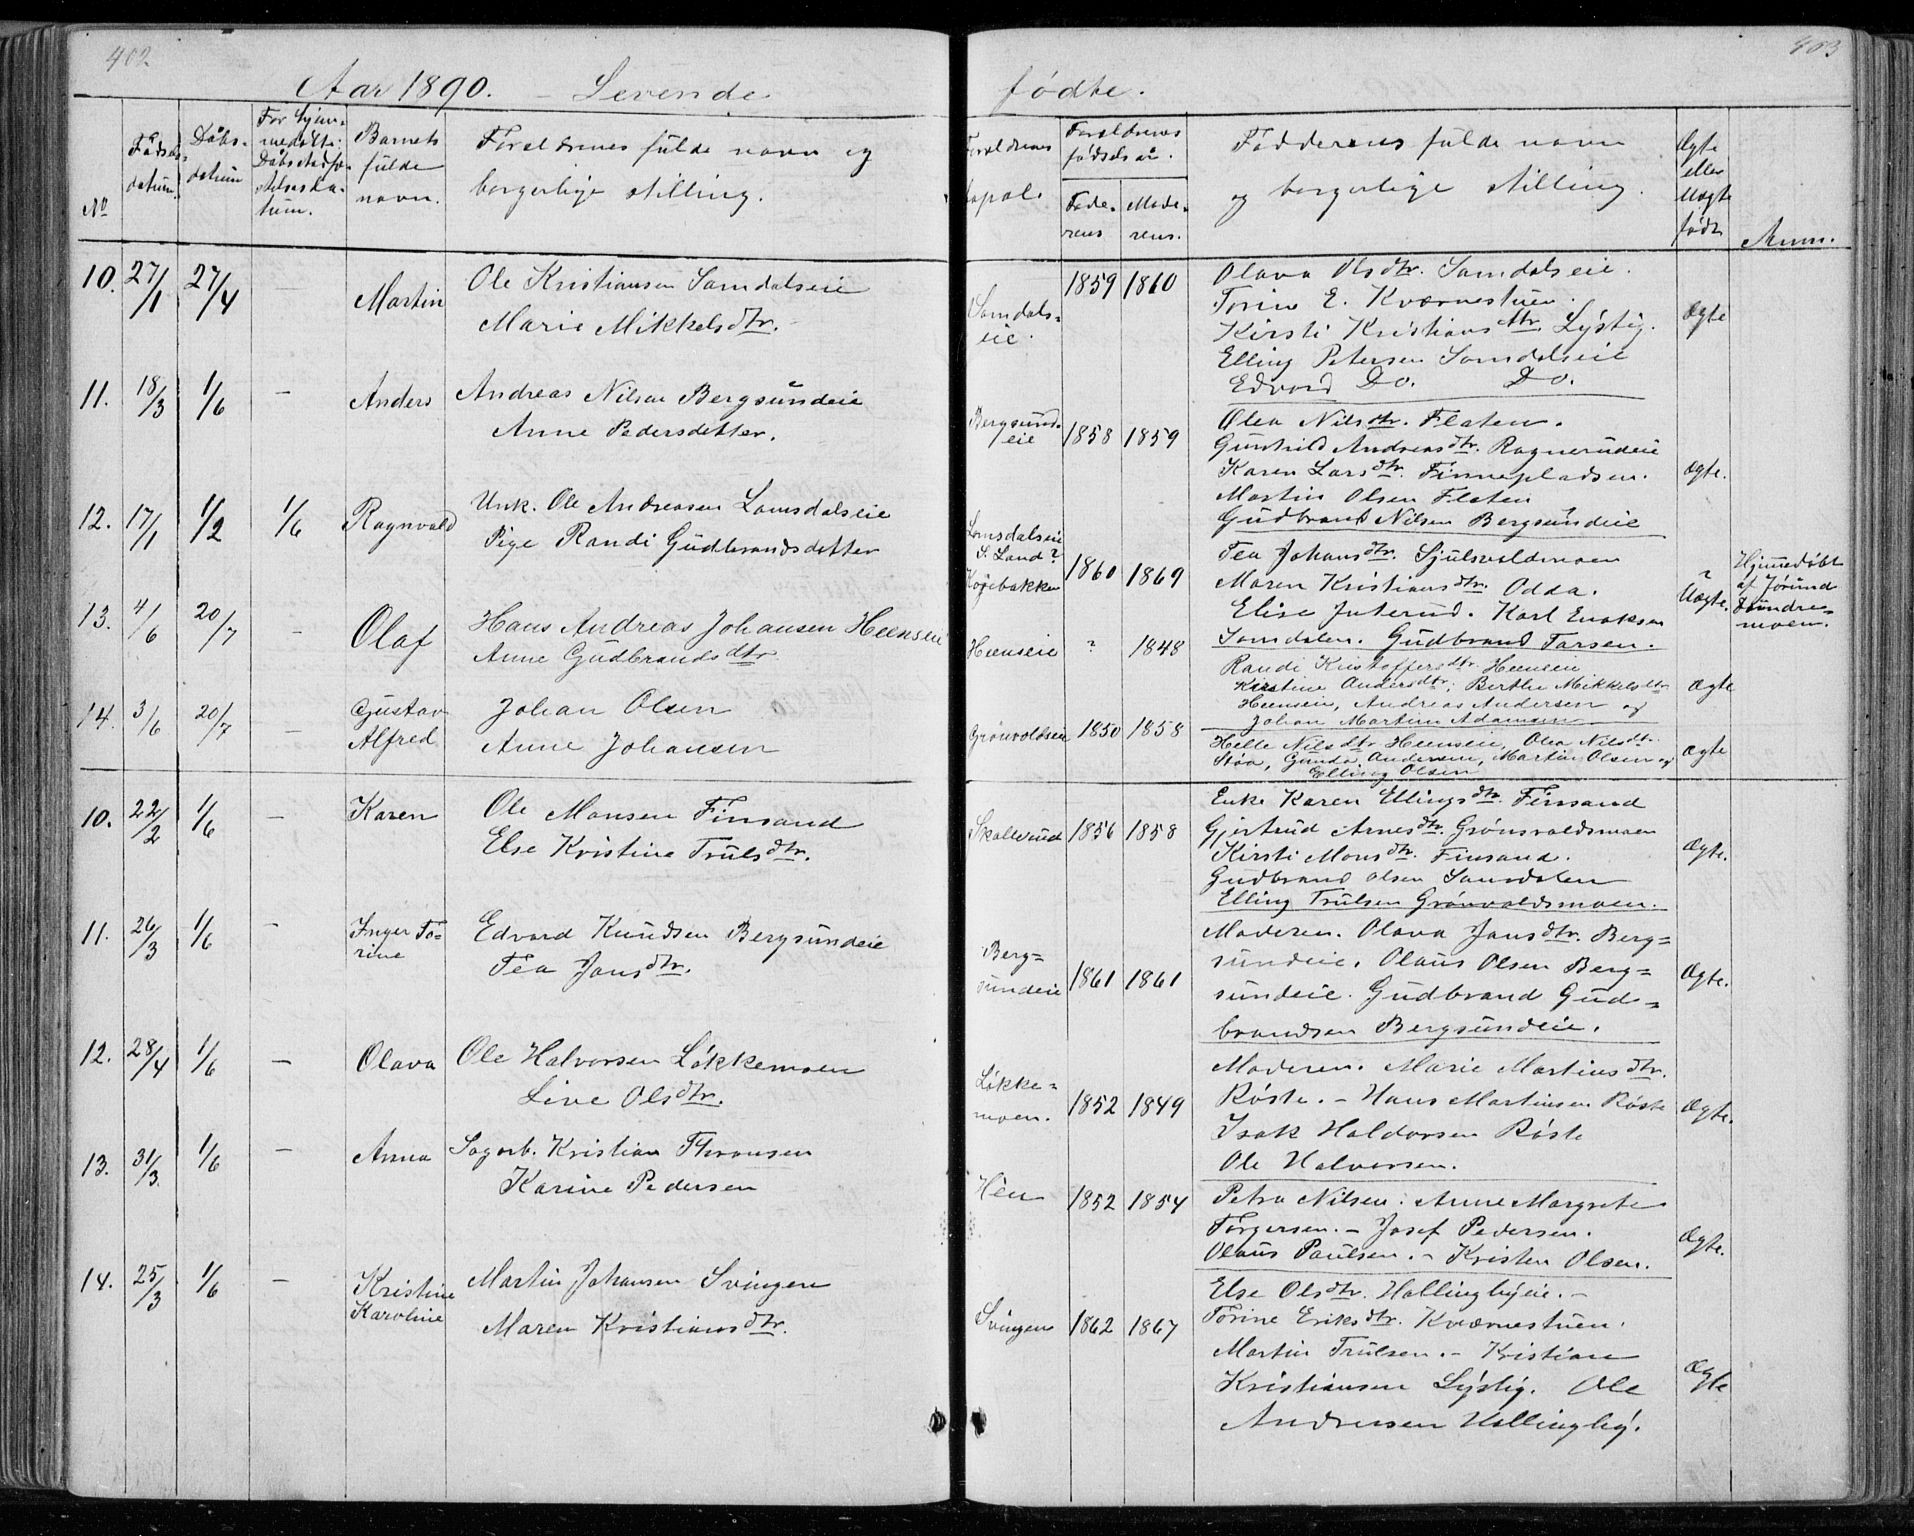 402
Aar 1890. – Levende
No
Fødsels-
datum.
Dåbs-
datum
For hjem-
medøbte:
Dåbsstadfæ-
stelsesda-
tum.
Barnets
fulde
navn.
Forældrenes fulde navn og
borgerlige stilling.
10. 27/1 27/4 – Martin Ole Kristiansen Samdalseie
Marie Mikkelsdtr.
11. 18/3 1/6 – Anders Andreas Nilsen Bergsundeie
Anne Pedersdetter.
12. 17/1 1/2 1/6 Ragnvald Unk. Ole Andreasen Lomsdalseie
Pige Randi Gudbrandsdatter
13. 4/6 20/7 – Olaf Hans Andreas Johansen Heenseie
Anne Gudbrandsdtr.
14. 3/6 20/7 – Gustav
Alfred
Johan Olsen
Anne Johansen
10. 22/2 1/6 – Karen Ole Monsen Finsand
Else Kristine Trulsdtr.
11. 26/3 1/6 – Inger To-
rine
Edvard Knudsen Bergsundeie
Tea Jansdtr.
12. 28/4 1/6 – Olava Ole Halvorsen Løkkemoen
Live Olsdtr.
13. 31/3 1/6 – Anna Sagarb. Kristian Thransen
Karine Pedersen
14. 25/3 1/6 – Kristine
Karoline
Martin Johansen Svingen
Maren Kristiansdtr.
403
fødte.
Forældrenes
bopæl.
Forældrenes
fødselsår.
Fade-
rens
Mode-
rens.
Fadderens fulde navn
og borgerlige stilling.
Ægte
eller
Uægte
født
Anm.
Samdals-
eie.
1859 1860
Olava Olsdtr. Samdalseie.
Torine E. Kværnestuen.
Kirsti Kristiansdtr. Lystig.
Elling Petersen Samdalseie
Edvard Do. Do.
Ægte
Bergsund-
eie
1858 1859
Olea Nilsdtr. Flaten.
Gunhild Andreasdtr. Ragnerudeie
Karen Larsdtr. Finnepladsen.
Martin Olsen Flaten
Gudbrand Nilsen Bergsundeie
Ægte.
Lomsdalseie
S. Land?
Høgebakken
1860 1869
Tea Johansdtr. Sjulsvoldmoen
Maren Kristiansdtr. Odda.
Elise Juterud. Karl Enoksen
Samdalen. Gudbrand Larsen.
Uægte.
Hjemmedøbt
af Jørund
Sundre-
moen.
Heenseie ? 1848
Randi Kristoffersdtr. Heenseie
Kirstine Andersdtr; Berthe Mikkelsdtr
Heenseie, Andreas Andersen og
Johan Martin Adamsen
Ægte
Grønvoldseie 1850 1858
Helle Nilsdtr Heenseie, Olea Nilsdtr.
Støa, Gunda Andersen, Martin Olsen og
Elling Olsen
Ægte
Skollerud 1856 1858
Enke Karen Ellingsdtr. Finsand
Gjertrud Arnesdtr. Grønvoldsmoen
Kirsti Monsdtr. Finsand.
Gudbrand Olsen Samdalen
Elling Trulsen Grønvoldsmoen.
Ægte.
Berg-
sundeie
1861 1861
Moderen. Olava Jansdtr. Berg-
sundeie. Olaus Olsen Berg-
sundeie. Gudbrand Gud-
brandsen Bergsundeie.
Ægte.
Løkke-
moen.
1852 1849
Moderen. Marie Martinsdtr.
Røste. – Hans Martinsen Røste
Isak Haldorsen Røste
Ole Halvorsen.
Ægte.
Hén 1852 1854
Petra Nilsen. Anne Margrete
Torgersen. – Josef Pedersen.
Olaus Paulsen. – Kristen Olsen.
Ægte.
Svingen 1862 1867
Else Olsdtr. Hallingbyeie. –
Torine Eriksdtr. Kværnestuen.
Martin Trulsen. – Kristian
Kristiansen Lystig. Ole
Andersen Hallingby.
Ægte